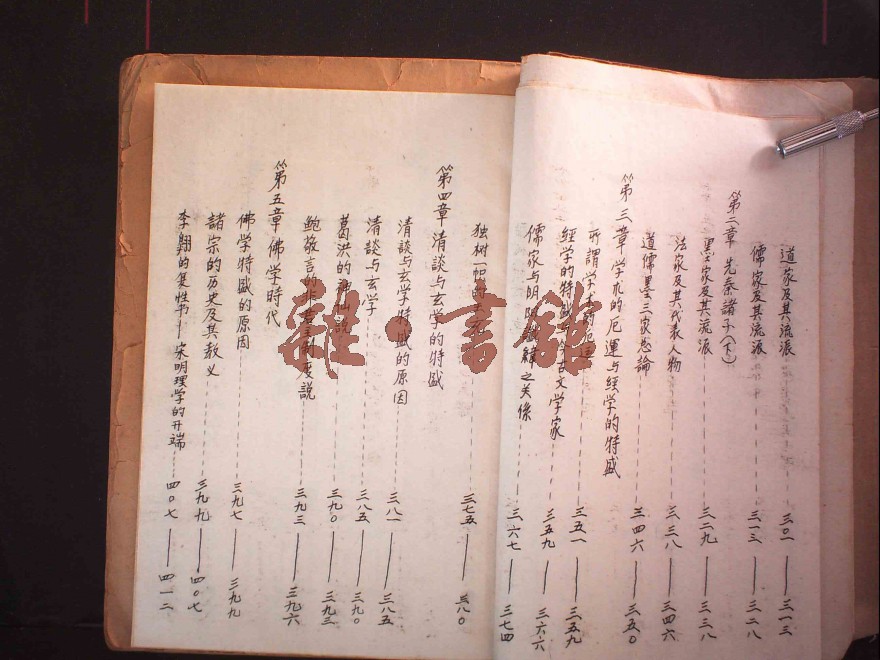 道家及其流派 三〇一——三一三
儒家及其流派 三一三——三二八
第二章 先秦諸子(下)
墨家及其流派 三二九——三三八
法家及其代表人物 三三八——三四六
道儒墨三家总論 三四六——三五〇
第三章 学术的厄運与经学的特盛
所謂学术的厄運 三五一——三五九
經学的特盛与今古文学家 三五九——三六六
儒家与阴阳讖緯之关係 三六七——三七四
独树一帜的 三七五——三八〇
第四章 清談与玄学的特盛
清談与玄学特盛的原因 三八一——三八五
清談与玄学 三八五——三九〇
葛洪的神仙說 三九〇——三九三
鮑敬言的非君主制度説 三九三——三九六
第五章 佛学時代
佛学特盛的原因 三九七——三九九
諸宗的历史及其教义 三九九——四〇七
李翱的复性书——宋明理学的开端 四〇七——四一二
雜·書館